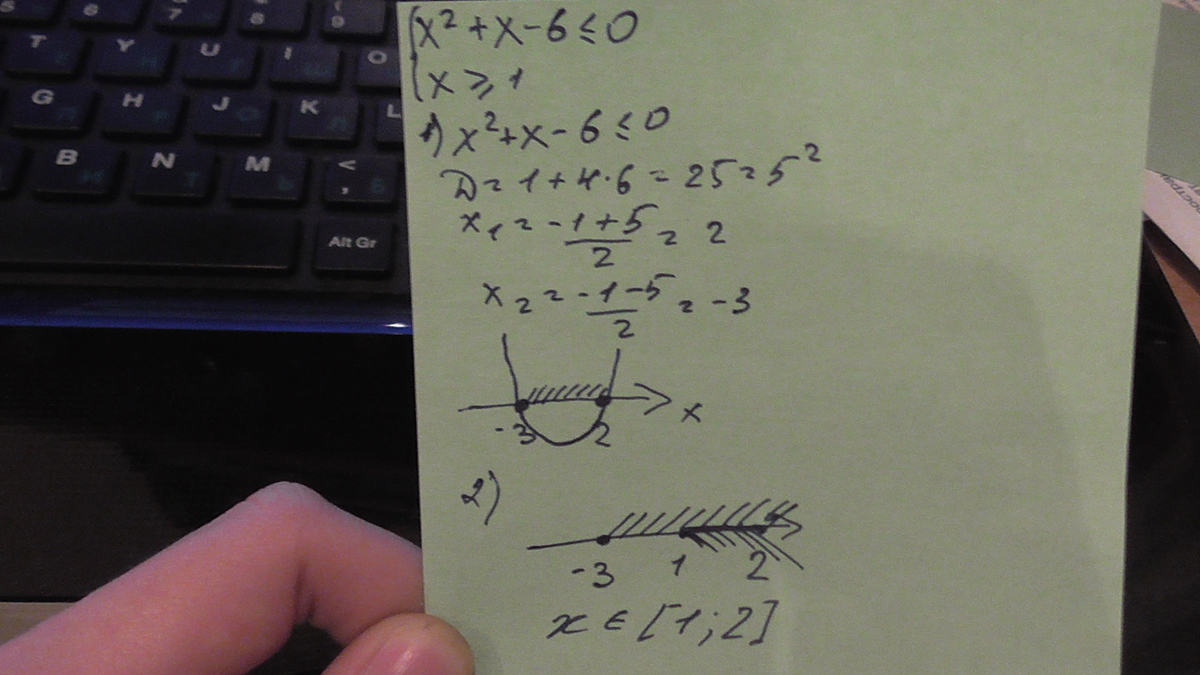 5 6 7 8 9
( 
T Y U I O
G H J K L
B N M < ,
Alt Gr
{x² + x - 6 ≤ 0
{x ≥ 1
1) x² + x - 6 ≤ 0
D = 1 + 4·6 = 25 = 5²
x₁ = -1+5/2 = 2
x₂ = -1-5/2 = -3
-3 2 x
2)
-3 1 2
x ∈ [1; 2]